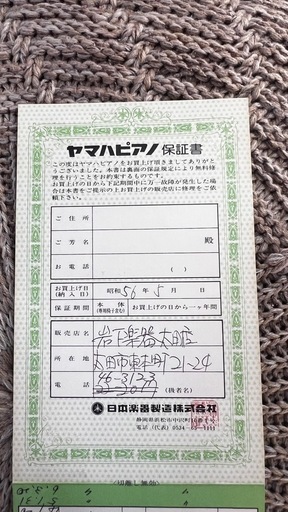 ヤマハピアノ 保証書
この度はヤマハピアノをお買上げ頂きましてありがとうございました。本書は裏面の保証規定により無料修理を行うことをお約束するものです。
お買上げの日から下記期間中に万一故障が発生した場合は本書をご提示の上お買上げの販売店に修理をご依頼下さい。
ご住所
ご芳名 殿
お電話 ( )
お買上げ日(納入日) 昭和 56年 5月 日
保証期間 本体 お買上げの日から一ヶ年間
販売店名 岩下楽器太田店
所在地 太田市東本町21-24
電話 45-3133 (扱者名)
日本楽器製造株式会社
静岡県浜松市中沢町10番1号
電話(代表) 0534-
<切離し無効>